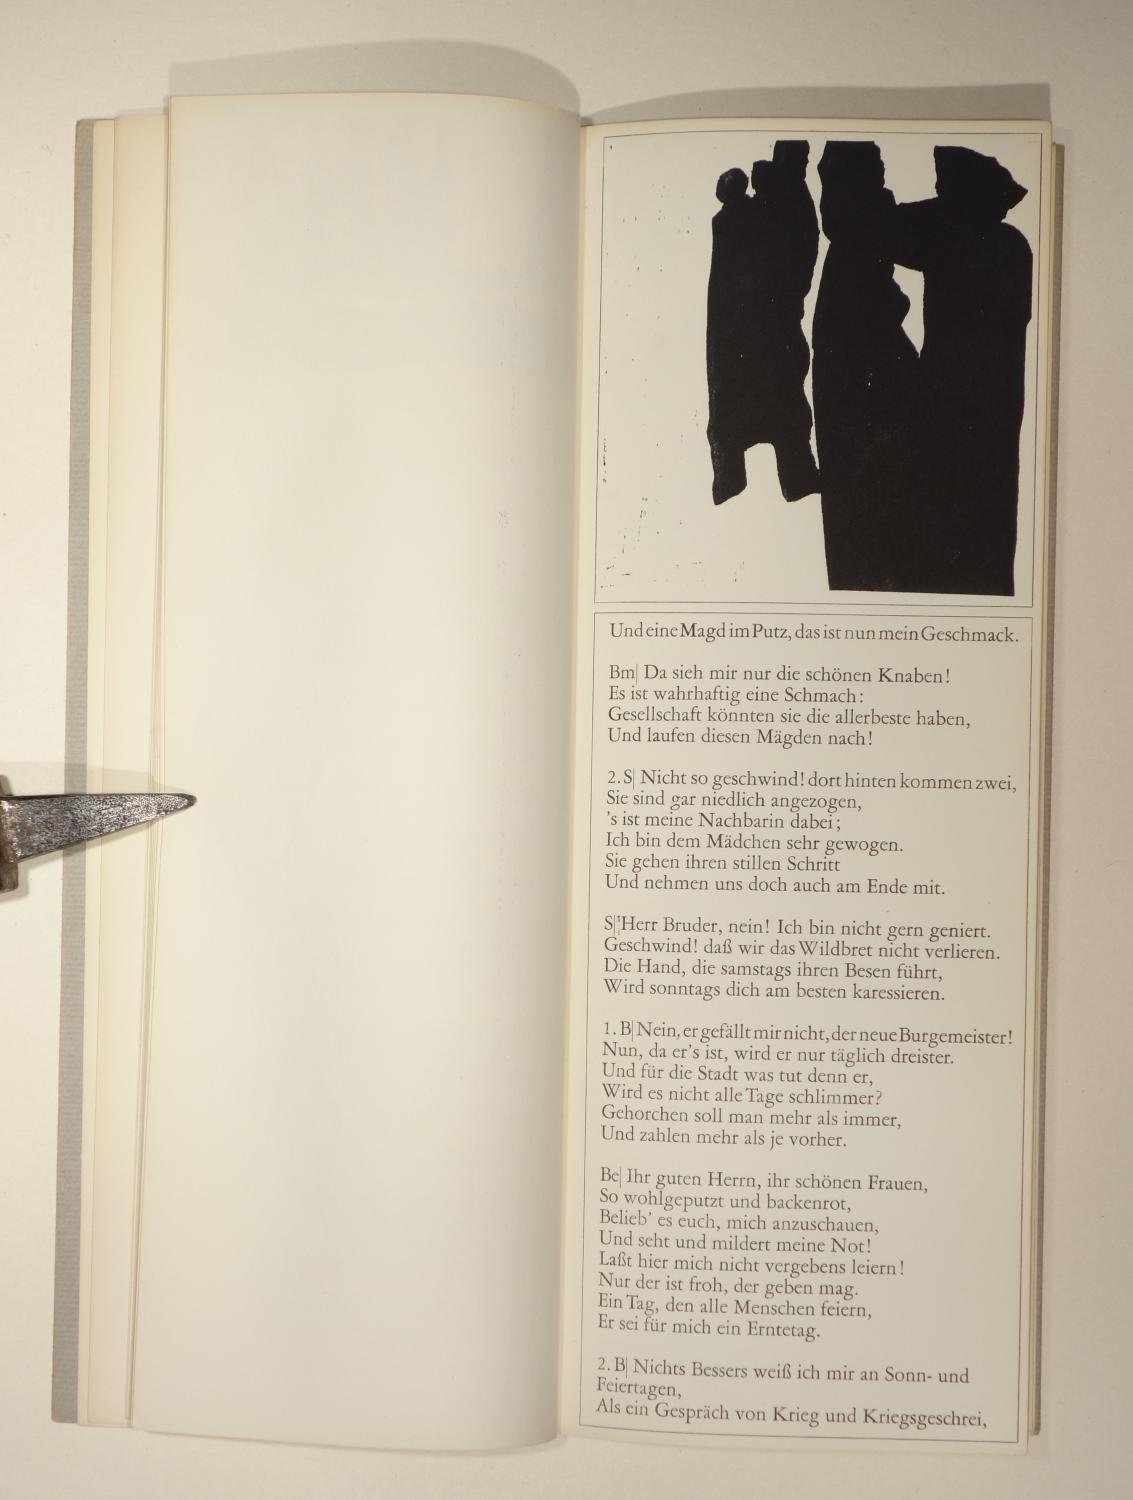 Und eine Magd im Putz, das ist nun mein Geschmack.
Bm| Da sieh mir nur die schönen Knaben!
Es ist wahrhaftig eine Schmach:
Gesellschaft könnten sie die allerbeste haben,
Und laufen diesen Mägden nach!
2. S| Nicht so geschwind! dort hinten kommen zwei,
Sie sind gar niedlich angezogen,
's ist meine Nachbarin dabei;
Ich bin dem Mädchen sehr gewogen.
Sie gehen ihren stillen Schritt
Und nehmen uns doch auch am Ende mit.
S| Herr Bruder, nein! Ich bin nicht gern geniert.
Geschwind! daß wir das Wildbret nicht verlieren.
Die Hand, die samstags ihren Besen führt,
Wird sonntags dich am besten karessieren.
1. B| Nein, er gefällt mir nicht, der neue Burgemeister!
Nun, da er's ist, wird er nur täglich dreister.
Und für die Stadt was tut denn er,
Wird es nicht alle Tage schlimmer?
Gehorchen soll man mehr als immer,
Und zahlen mehr als je vorher.
Be| Ihr guten Herrn, ihr schönen Frauen,
So wohlgeputzt und backenrot,
Belieb' es euch, mich anzuschauen,
Und seht und mildert meine Not!
Laßt hier mich nicht vergebens leiern!
Nur der ist froh, der geben mag.
Ein Tag, den alle Menschen feiern,
Er sei für mich ein Erntetag.
2. B| Nichts Bessers weiß ich mir an Sonn- und
Feiertagen,
Als ein Gespräch von Krieg und Kriegsgeschrei,